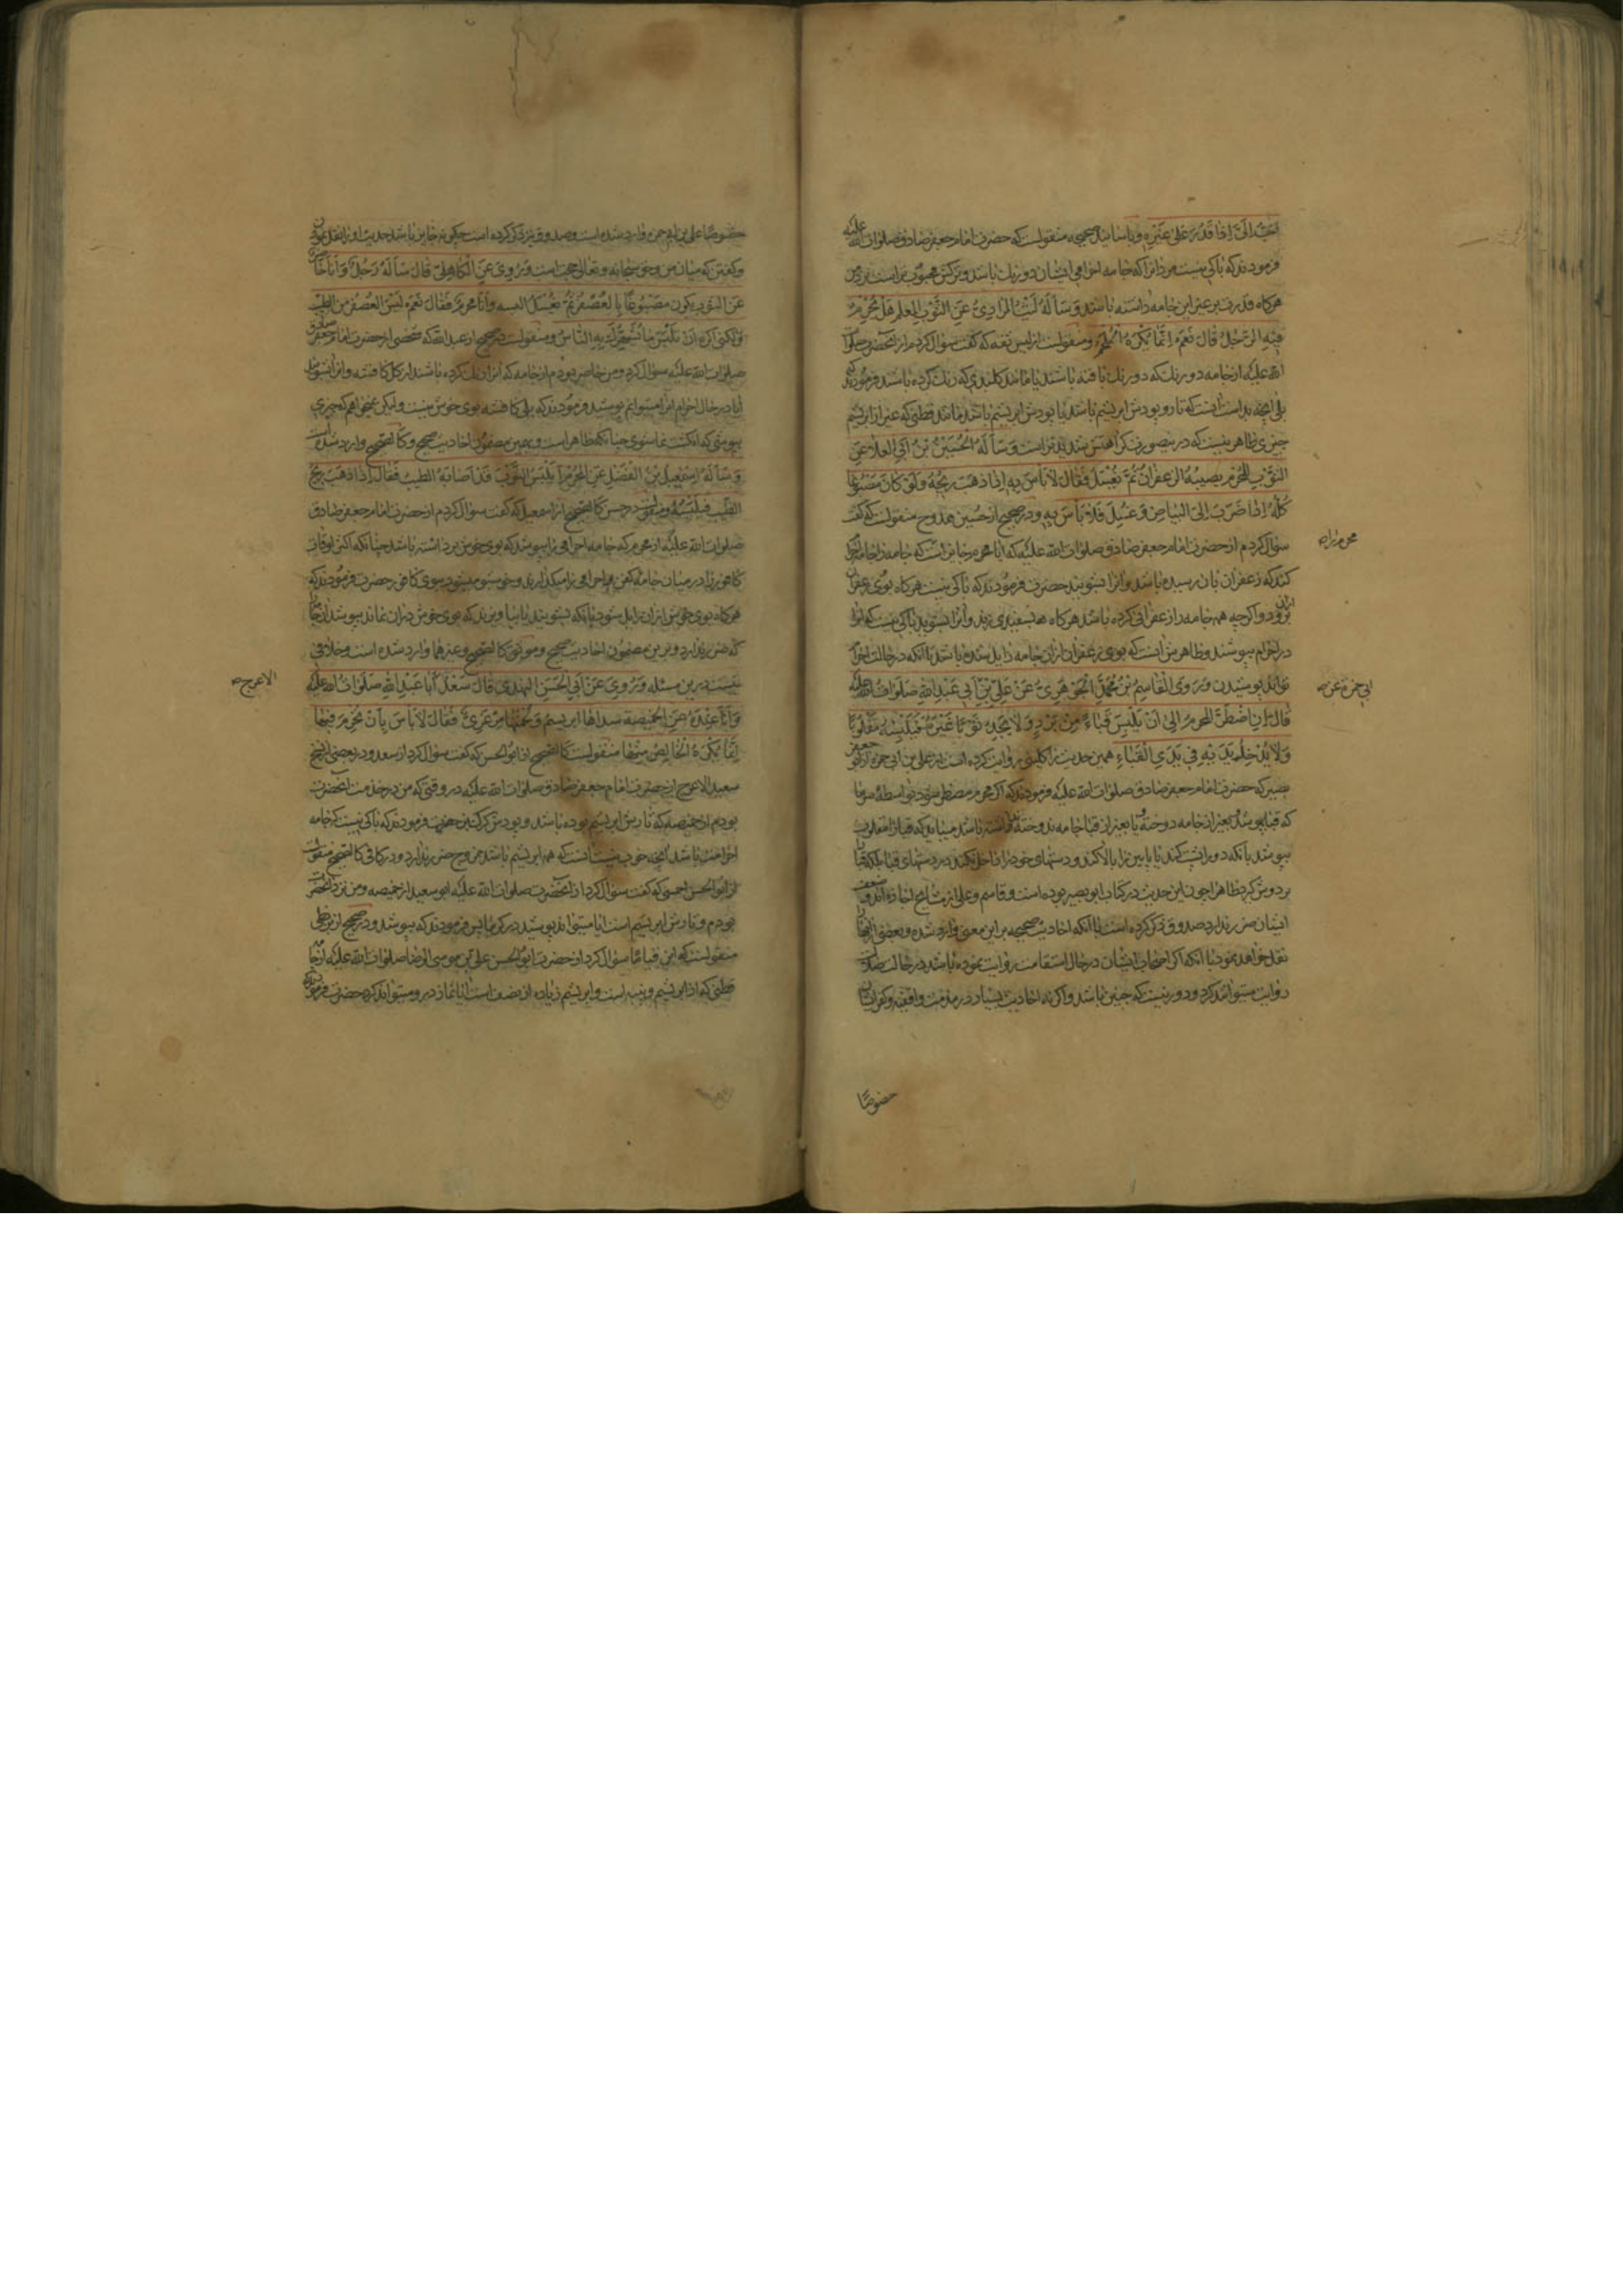 احب الی اذا قدر علی غیره و باسانید صحیحه منقولست که حضرت امام جعفر صادق صلوات الله علیه
فرمودند که باکی نیست مرد را که جامه احرامی ایشان دو رنگ باشد و ترکش محبوب تر است نزد من
هرگاه قدرت بر غیر این جامه داشته باشد و سأله لیث المرادی عن الثوب المعلم هل یحرم
فیه الرجل قال نعم انما یکره الملحم و منقولست از لیث ثقه که گفت سؤال کردم از آنحضرت صلوات
الله علیه از جامه دو رنگ که دو رنگ بافته باشند یا مانند کلندی که رنگ کرده باشند فرمودند
بلی آنچه بد است آنست که تار و پودش ابریشم باشد یا پودش ابریشم باشد مانند قطنی که غیر از ابریشم
چیزی ظاهر نیست که درین صورت کراهتش شدیدتر است و سأله الحسین بن ابی العلاء عن
الثوب للمحرم یصیبه الزعفران ثم یغسل فقال لا باس به اذا ذهب ریحه و لو کان مصبوغا
کله اذا ضرب الی البیاض و غسل فلا باس به و در صحیح از حسین ممدوح منقولست که گفت
سؤال کردم از حضرت امام جعفر صادق صلوات الله علیه که ایا محرم جایز است که جامه را جامه احرام
کند که زعفران بان رسیده باشد و انرا بشویند حضرت فرمودند که باکی نیست هرگاه بوی زعفران
برود و اگرچه همه جامه را زعفرانی کرده باشند هرگاه بسفیدی زند و انرا بشویند باکی نیست که انرا
در احرام بپوشند و ظاهرش آنست که بوی زعفران ازان جامه زایل شده باشد با آنکه در حالت احرام
تواند پوشیدن و روی القاسم بن محمد الجوهری عن علی بن ابی عبد الله صلوات الله علیه
قال ان اضطر المحرم الی ان یلبس قباء من برد و لا یجد ثوبا غیره فیلبسه مقلوبا
و لا یدخل یدیه فی یدی القباء همین حدیث را کلینی روایت کرده است از علی بن ابی حمزه از ابو
بصیر که حضرت امام جعفر صادق صلوات الله علیه فرمودند که اگر محرم مضطر شود بواسطه سرما
که قبا بپوشد بغیر از جامه دوخته یا بغیر از قبا جامه ندوخته نداشته باشد میباید که قبا را مقلوب
بپوشد بانکه دوراپشت کند یا پایین را بالا کند و دستهای خود را داخل نکند در دستهای قبا بلکه قبا
بر دوش گیرد ظاهرا چون این حدیث در کتاب ابو بصیر بوده است و قاسم و علی از مشایخ اجازه اند و ضعف
ایشان ضرر ندارد صدوق ذکر کرده است با آنکه احادیث صحیحه بر این معنی وارد شده و بعضی از انها
نقل خواهد نمود با آنکه اکر اصحاب ایشان در حال استقامت روایت نموده باشند در حالت ضلالت
روایت میتوانند کرد و دور نیست که چنین باشد و اگر نه احادیث بسیار در مذمت واقفیه و کفر ایشان
محرم را صح
ابی حمزة عن صح
خصوصا
خصوصا علی بن ابی حمزه وارد شده است و صدوق نیز ذکر کرده است چگونه جایز باشد حدیث او را نقل نمودن
و گفتن که میان من و حق سبحانه و تعالی حجت است و روی عن الکاهلی قال سأله رجل و انا حاضر
عن الثوب یکون مصبوغا بالعصفر ثم یغسل البسه و انا محرم فقال نعم لیس العصفر من الطیب
و لکنی اکره ان تلبس ما یشهرک به الناس و منقولست در صحیح از عبد الله که شخصی از حضرت امام جعفر صادق
صلوات الله علیه سؤال کرد و من حاضر بودم از جامه که انرا رنگ کرده باشند از گل کافشه و انرا بشویند
ایا در حال احرام انرا میتوانم پوشید فرمودند که بلی کافشه بوی خوش نیست و لیکن نمیخواهم که چیزی
بپوشی که انگشت نما شوی چنانکه ظاهر است و بهمین مضمون احادیث صحیح و کالصحیح وارد شده است
و سأله اسمعیل بن الفضل عن المحرم أیلبس الثوب قد اصابه الطیب فقال اذا ذهب ریح
الطیب فلیلبسه و منقولست در حسن کالصحیح از اسمعیل که گفت سؤال کردم از حضرت امام جعفر صادق
صلوات الله علیه از محرم که جامه احرامی را بپوشد که بوی خوش برداشته باشد چنانکه اکثر اوقات
کافور را در میان جامه کفن و احرامی را میگذارند و خوشبو میشود ببوی کافور حضرت فرمودند که
هرگاه بوی خوش ازان زایل شود بانکه بشویند یا بیاویزند که بوی خوش دران نماند بپوشد انرا
که ضرر ندارد و برین مضمون احادیث صحیح و موثق کالصحیح و غیرهما وارد شده است و خلافی
نیست درین مسئله و روی عن ابی الحسن النهدی قال سأل ابا عبد الله صلوات الله علیه
و انا عنده عن الخمیصة سداها ابریسم و لحمتها مرعزی فقال لا باس بان تحرم فیها
انما یکره الخالص منها منقولست کالصحیح از ابو الحسن که گفت سؤال کرد از سعد و در بعضی از نسخ
سعید الاعرج از حضرت امام جعفر صادق صلوات الله علیه در وقتی که من در خدمت آنحضرت
بودم از خمیصه که تارش ابریشم بوده باشد و پودش کرک بز حضرت فرمودند که باکی نیست که جامه
احرامت باشد آنچه خوب نیست آنست که همه ابریشم باشد ممزوج ضرر ندارد و در کافی کالصحیح منقولست
از ابو الحسن احمسی که گفت سؤال کرد از آنحضرت صلوات الله علیه ابو سعید از خمیصه و من نزد آنحضرت
بودم و تارش ابریشم است ایا میتواند پوشید در گرما پس فرمودند که بپوشد و در صحیح از بزنطی
منقولست که ابن قیاما سؤال کرد از حضرت ابو الحسن علی بن موسی الرضا صلوات الله علیه از جامه
قطنی که از ابریشم و پنبه است و ابریشم زیاده از نصف است ایا نماز در و میتواند کرد حضرت فرمودند
الاعرج صح